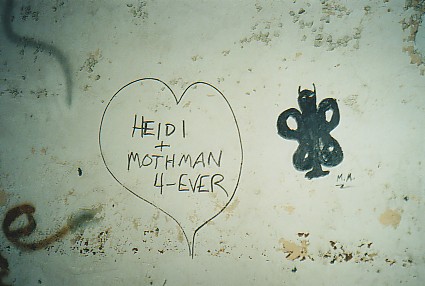 HEIDI
+
MOTHMAN
4-EVER
M.M.